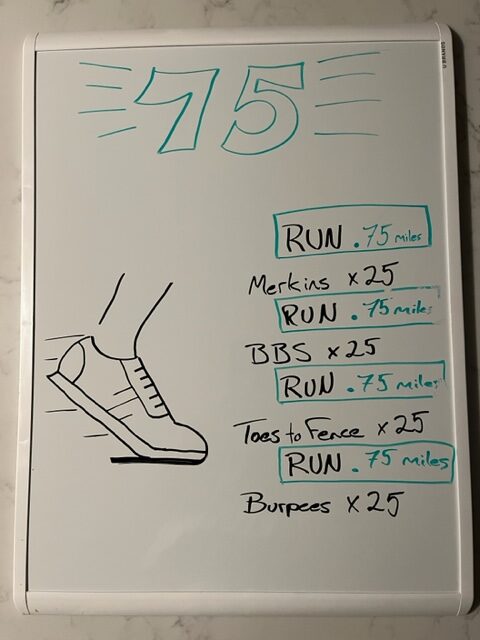 75
RUN .75 miles
Merkins x25
RUN .75 miles
BBS x25
RUN .75 miles
Toes to Fence x25
RUN .75 miles
Burpees x25
U BRANDS